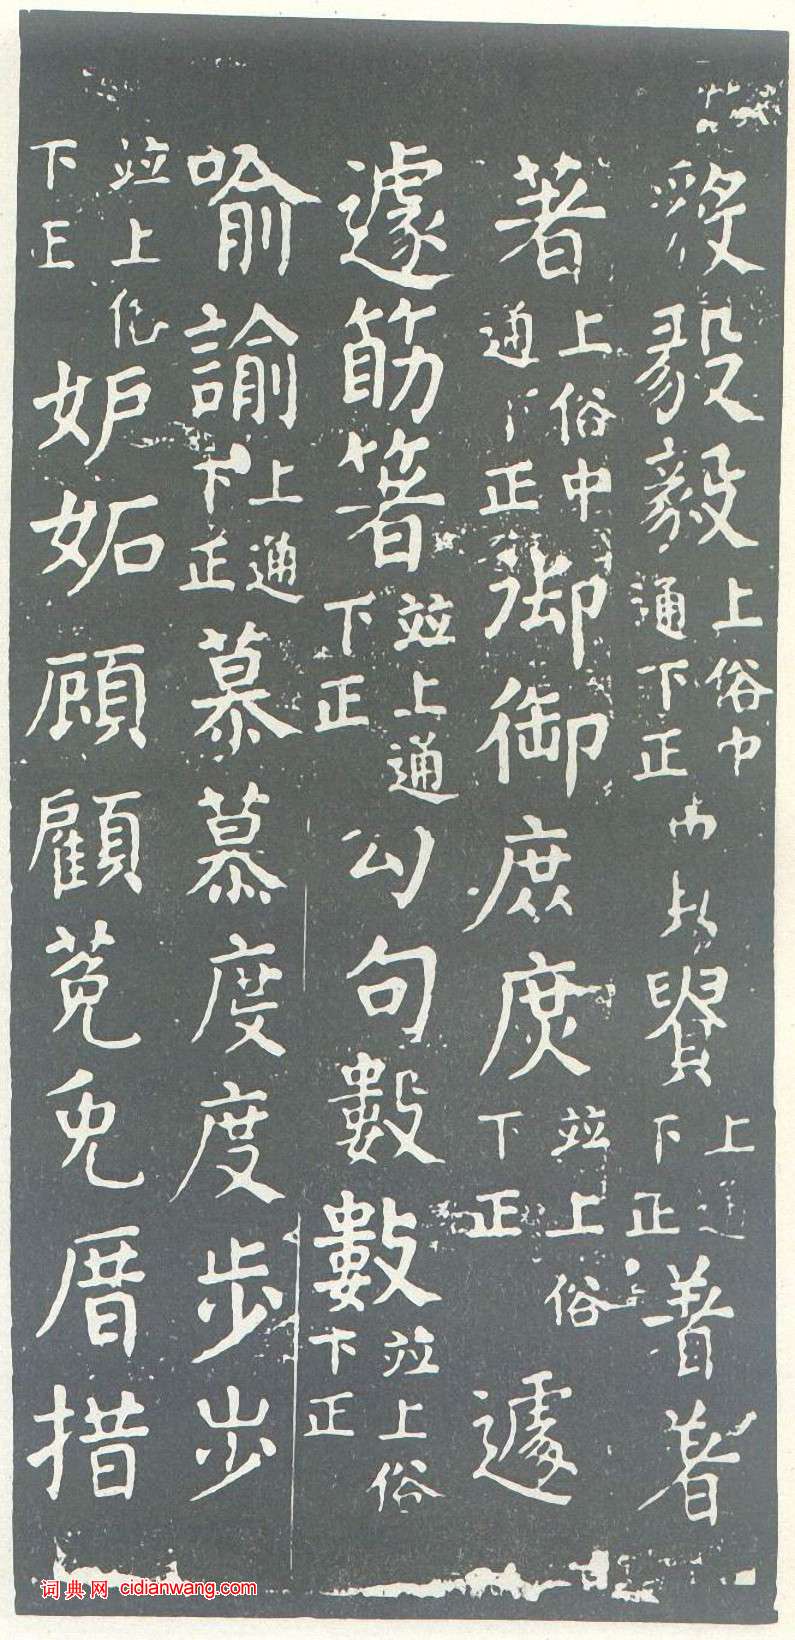 毅毅上俗中通下正賢上通下正著著
著上俗中通下正御御庶庶並上俗下正遽
遽筯箸並上通下正勾句數數並上俗下正
喻諭上通下正慕慕度度步步
並上俗下正妒妬顾顧莵兎厝措
词典网 cidianwang.com